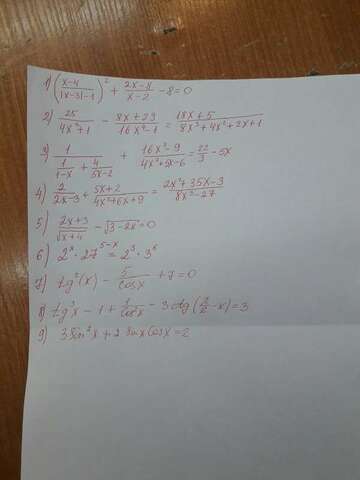 1) ((x-4)/(|x-3|-1))² + (2x-11)/(x-2) - 8 = 0
2) 25/(4x²+1) - (8x+29)/(16x⁴-1) = (18x+5)/(8x³+4x²+2x+1)
3) 1/(1/(1-x) + 4/(5x-2)) + (16x²-9)/(4x²+5x-6) = 22/3 - 5x
4) 2/(2x-3) + (5x+2)/(4x²+6x+9) = (2x²+35x-3)/(8x³-27)
5) (2x+3)/√(x+4) - √(3-2x) = 0
6) 2ˣ · 27⁵⁻ˣ = 2³ · 3⁶
7) tg²(x) - 5/cosx + 7 = 0
8) tg³x - 1 + 1/cos²x - 3ctg(π/2 - x) = 3
9) 3sin²x + 2 sinx cosx = 2